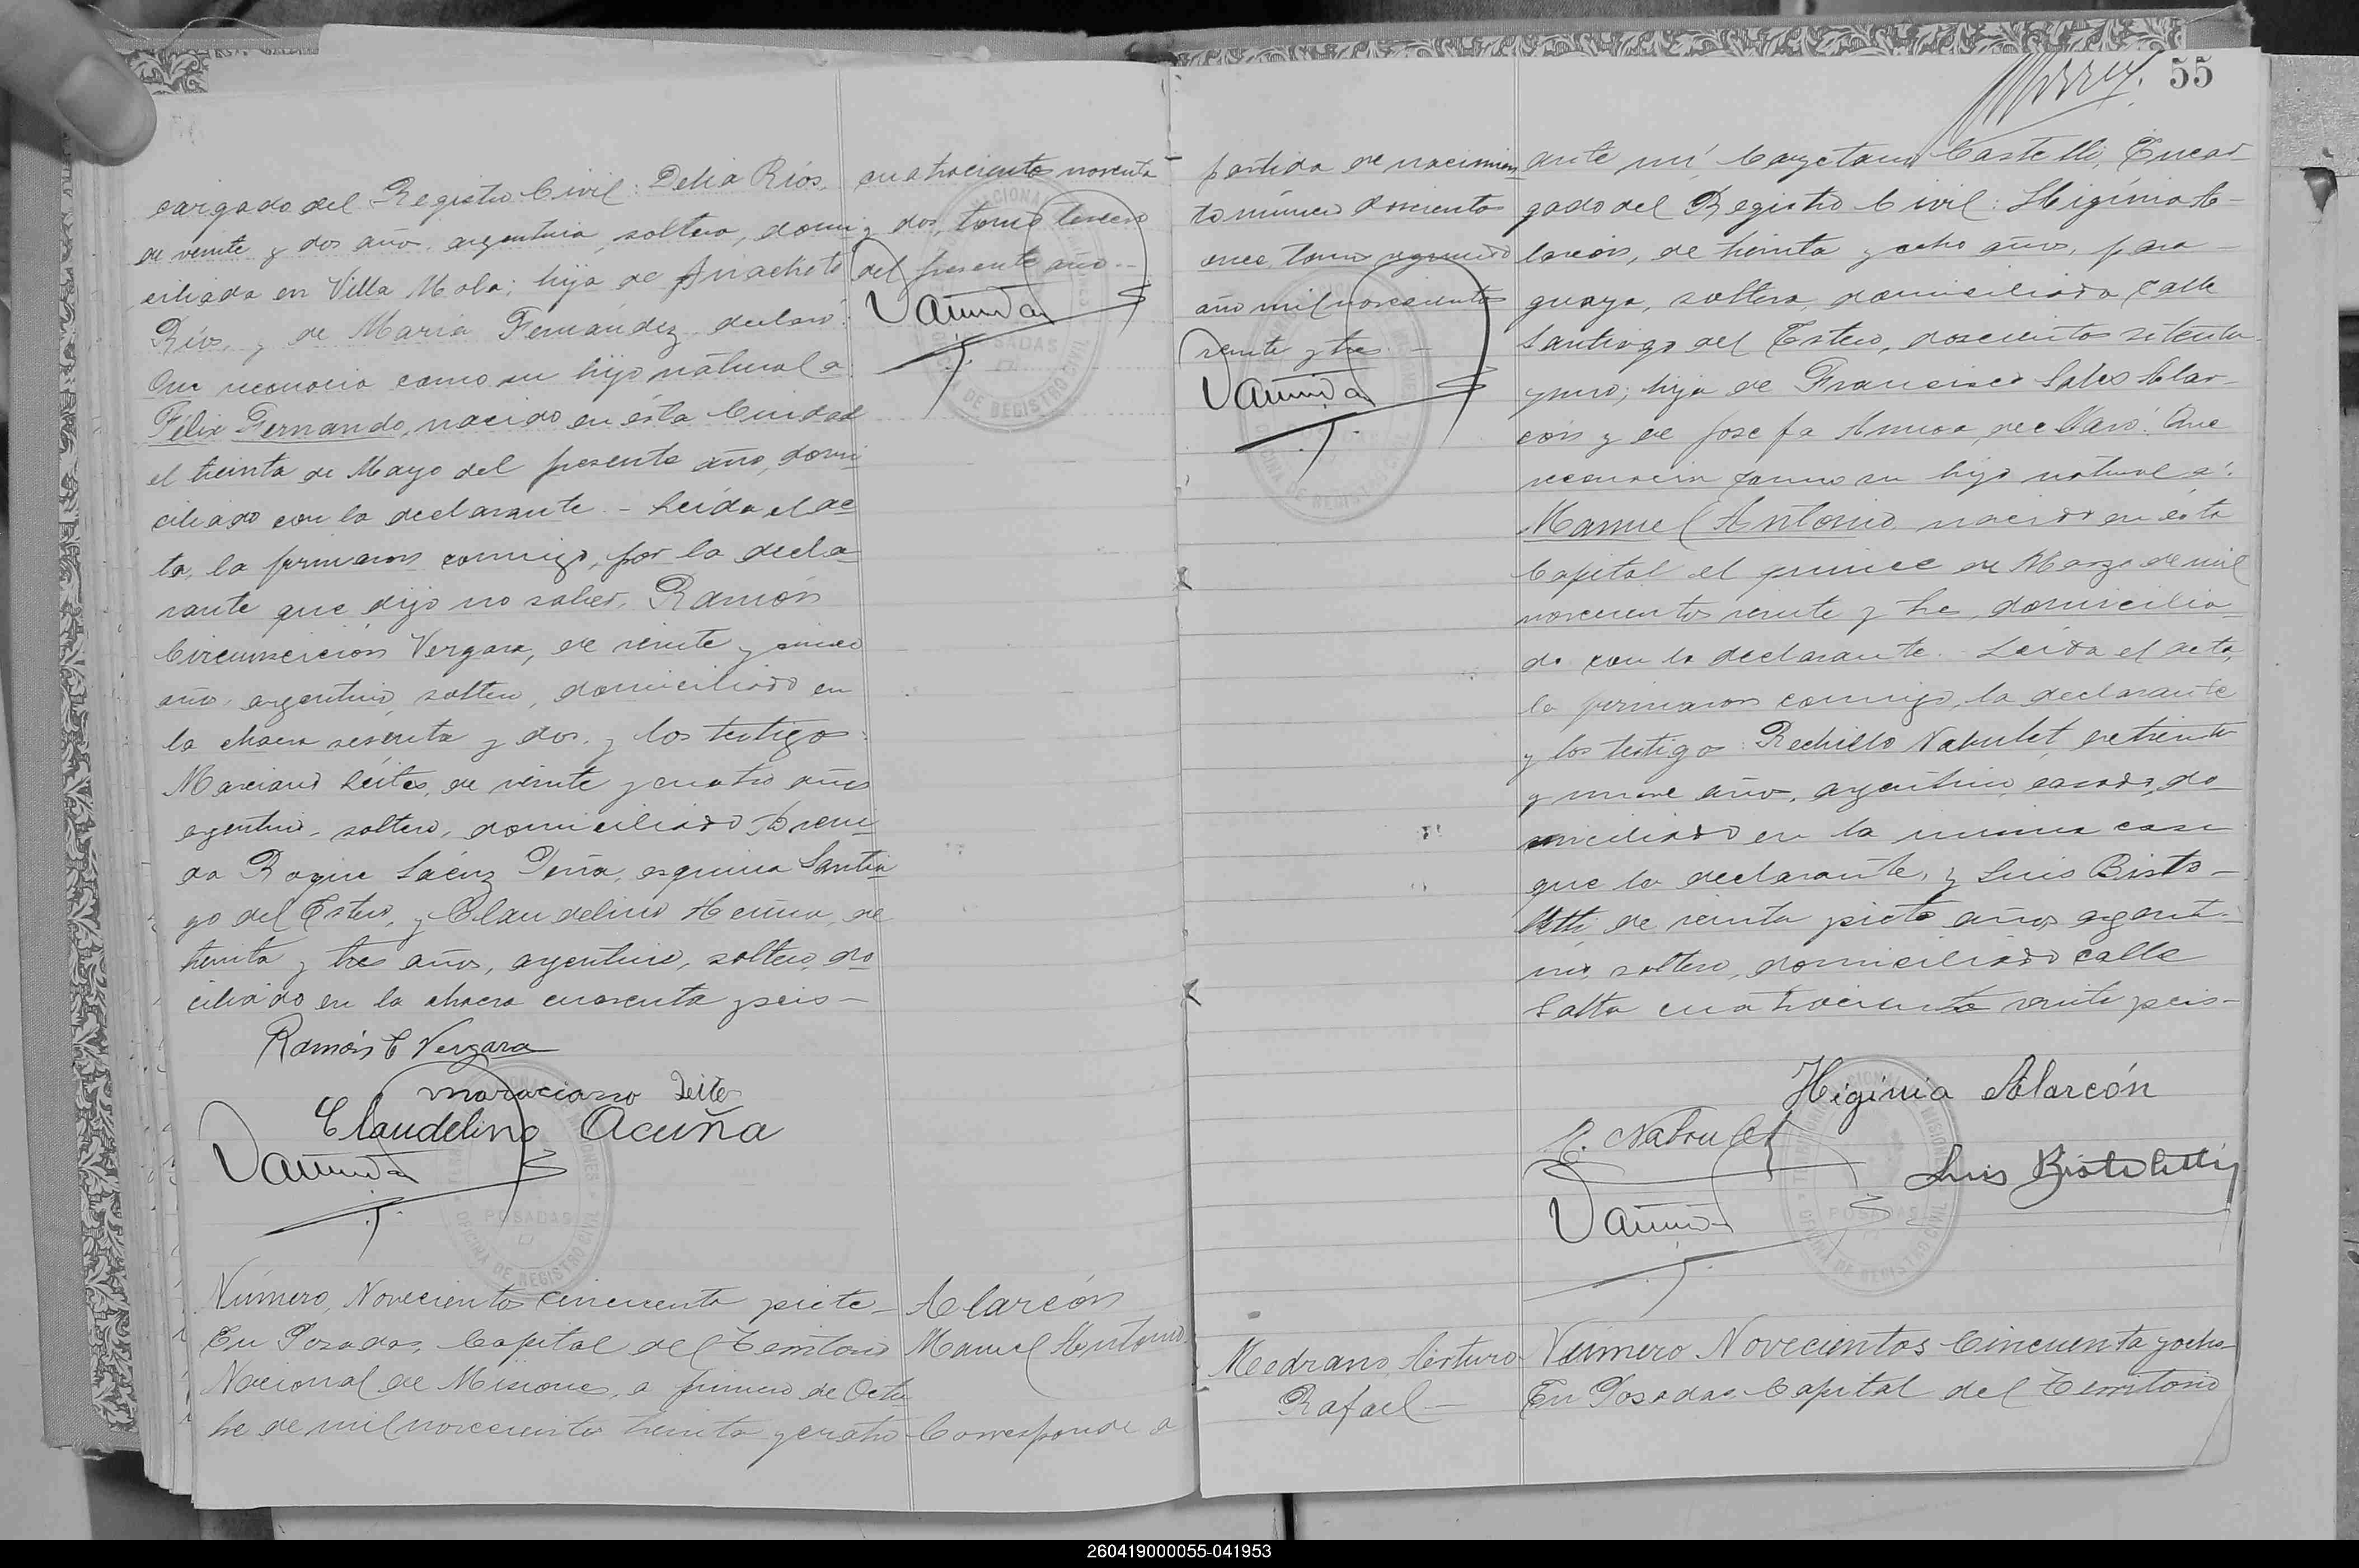 cargado del Registro Civil: Delia Ríos,
de veinte y dos año, argentina, soltera, domi
ciliada en Villa Mola; hija de Anacleto
Ríos, y de María Fernández, declaró:
Que reconocia como su hijo natural a
Félix Fernando, nacido en ésta Ciudad
el treinta de Mayo del presente año, domi
ciliado con la declarante. - Leída el ac
ta, la firmaron conmigo, por la decla
rante que dijo no saber, Ramón
Circuncición Vergara, de veinte y cinco
año, argentino, soltero, domiciliado en
la chacra sesenta y dos, y los testigos:
Marciano Leites, de veinte y cuatro años
argentino, soltero, domiciliado Aveni
da Roque Sáenz Peña, esquina Santia
go del Estero, y Claudelino Acuña, de
treinta y tres años, argentino, soltero, do
ciliado en la chacra cuarenta y seis -
Ramón C Vergara
marciano Leites
Claudelino Acuña
cuatrocientos noventa
y dos, tomo tercero
del presente año. -
POSADAS
OFICINA DE REGISTRO CIVIL
Número, Novecientos cincuenta y siete -
En Posadas, Capital del Territorio
Nacional de Misiones, a primero de Octu
bre de mil novecientos treinta y cuatro
Alarcón
Manuel Antonio
Corresponde a
55
partida de nacimien
to número doscientos
once, tomo segundo
año mil novecientos
veinte y tres. -
ante mí, Cayetano Castelli, Encar
gado del Registro Civil: Higinia A-
larcón, de treinta y ocho años, para -
guaya, soltera, domiciliada calle
Santiago del Estero, doscientos setenta
y uno; hija de Francisco Sales Alar -
cón y de Josefa Amuoa, declaró: Que
reconocia como su hijo natural a:
Manuel Antonio nacido en ésta
Capital el quince de Marzo de mil
novecientos veinte y tre, domicilia
do con la declarante. - Leída el acta,
la firmaron conmigo, la declarante
y los testigos: Nabulet, de treinta
y nueve año, argentino, casado, do
miciliado en la misma casa
que la declarante, y Luis Bisto -
letti, de veinta y siete años, argenti -
no, soltero, domiciliado calle
Salta cuatrocientos veinte y seis -
Higinia Alarcón
Nabulet
Luis Bistoletti
POSADAS
OFICINA DE REGISTRO CIVIL
Medrano, Arturo
Rafael -
Número Novecientos Cincuenta y ocho -
En Posadas Capital del Territorio
260419000055-041953